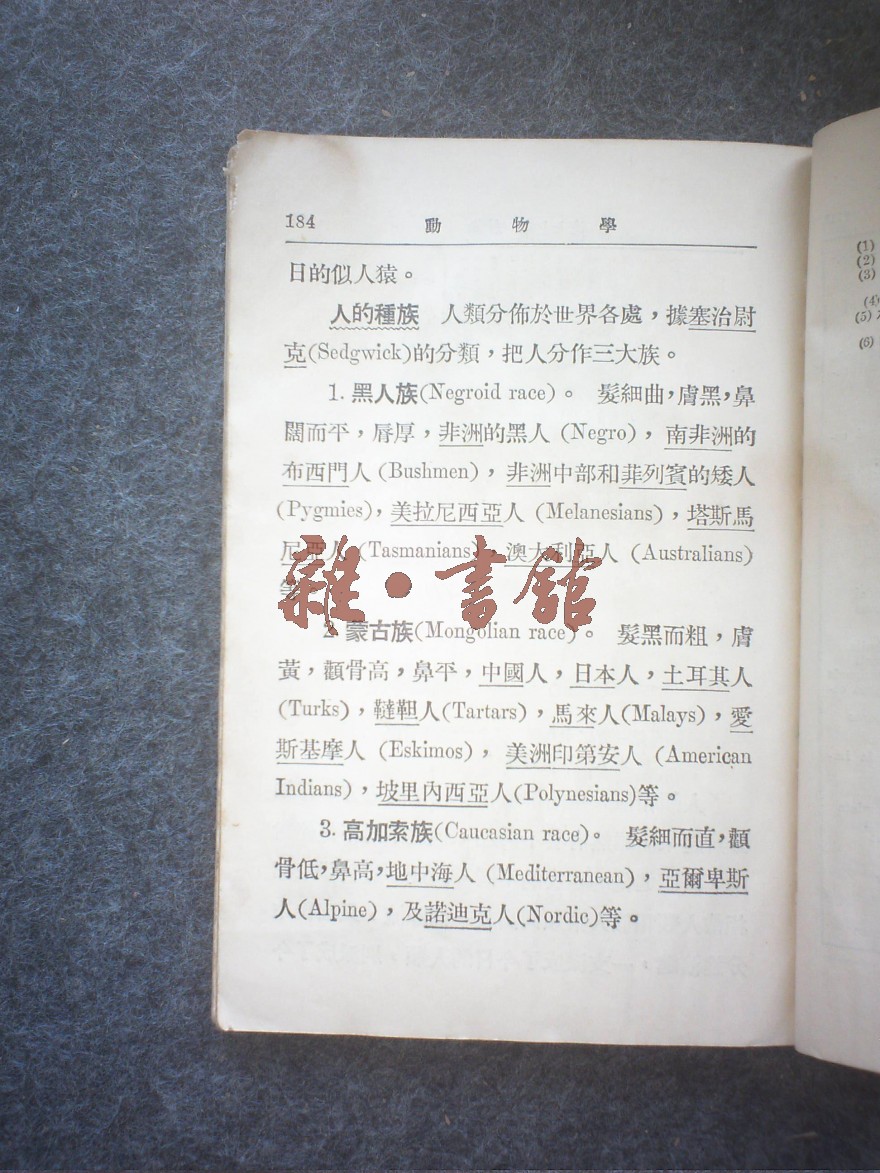 184 動物學
日的似人猿。
人的種族 人類分佈於世界各處，據塞治尉
克(Sedgwick)的分類，把人分作三大族。
1. 黑人族(Negroid race)。 髮細曲，膚黑，鼻
闊而平，唇厚，非洲的黑人 (Negro)，南非洲的
布西門人 (Bushmen)，非洲中部和菲列賓的矮人
(Pygmies)，美拉尼西亞人 (Melanesians)，塔斯馬
尼亞人 (Tasmanians)，澳大利亞人 (Australians)
等
2. 蒙古族(Mongolian race)。 髮黑而粗，膚
黃，顴骨高，鼻平，中國人，日本人，土耳其人
(Turks)，韃靼人(Tartars)，馬來人(Malays)，愛
斯基摩人 (Eskimos)，美洲印第安人 (American
Indians)，坡里內西亞人(Polynesians)等。
3. 高加索族(Caucasian race)。 髮細而直，顴
骨低，鼻高，地中海人 (Mediterranean)，亞爾卑斯
人(Alpine)，及諾迪克人(Nordic)等。
雜·書館
(1)
(2)
(3)
(4)
(5)
(6)